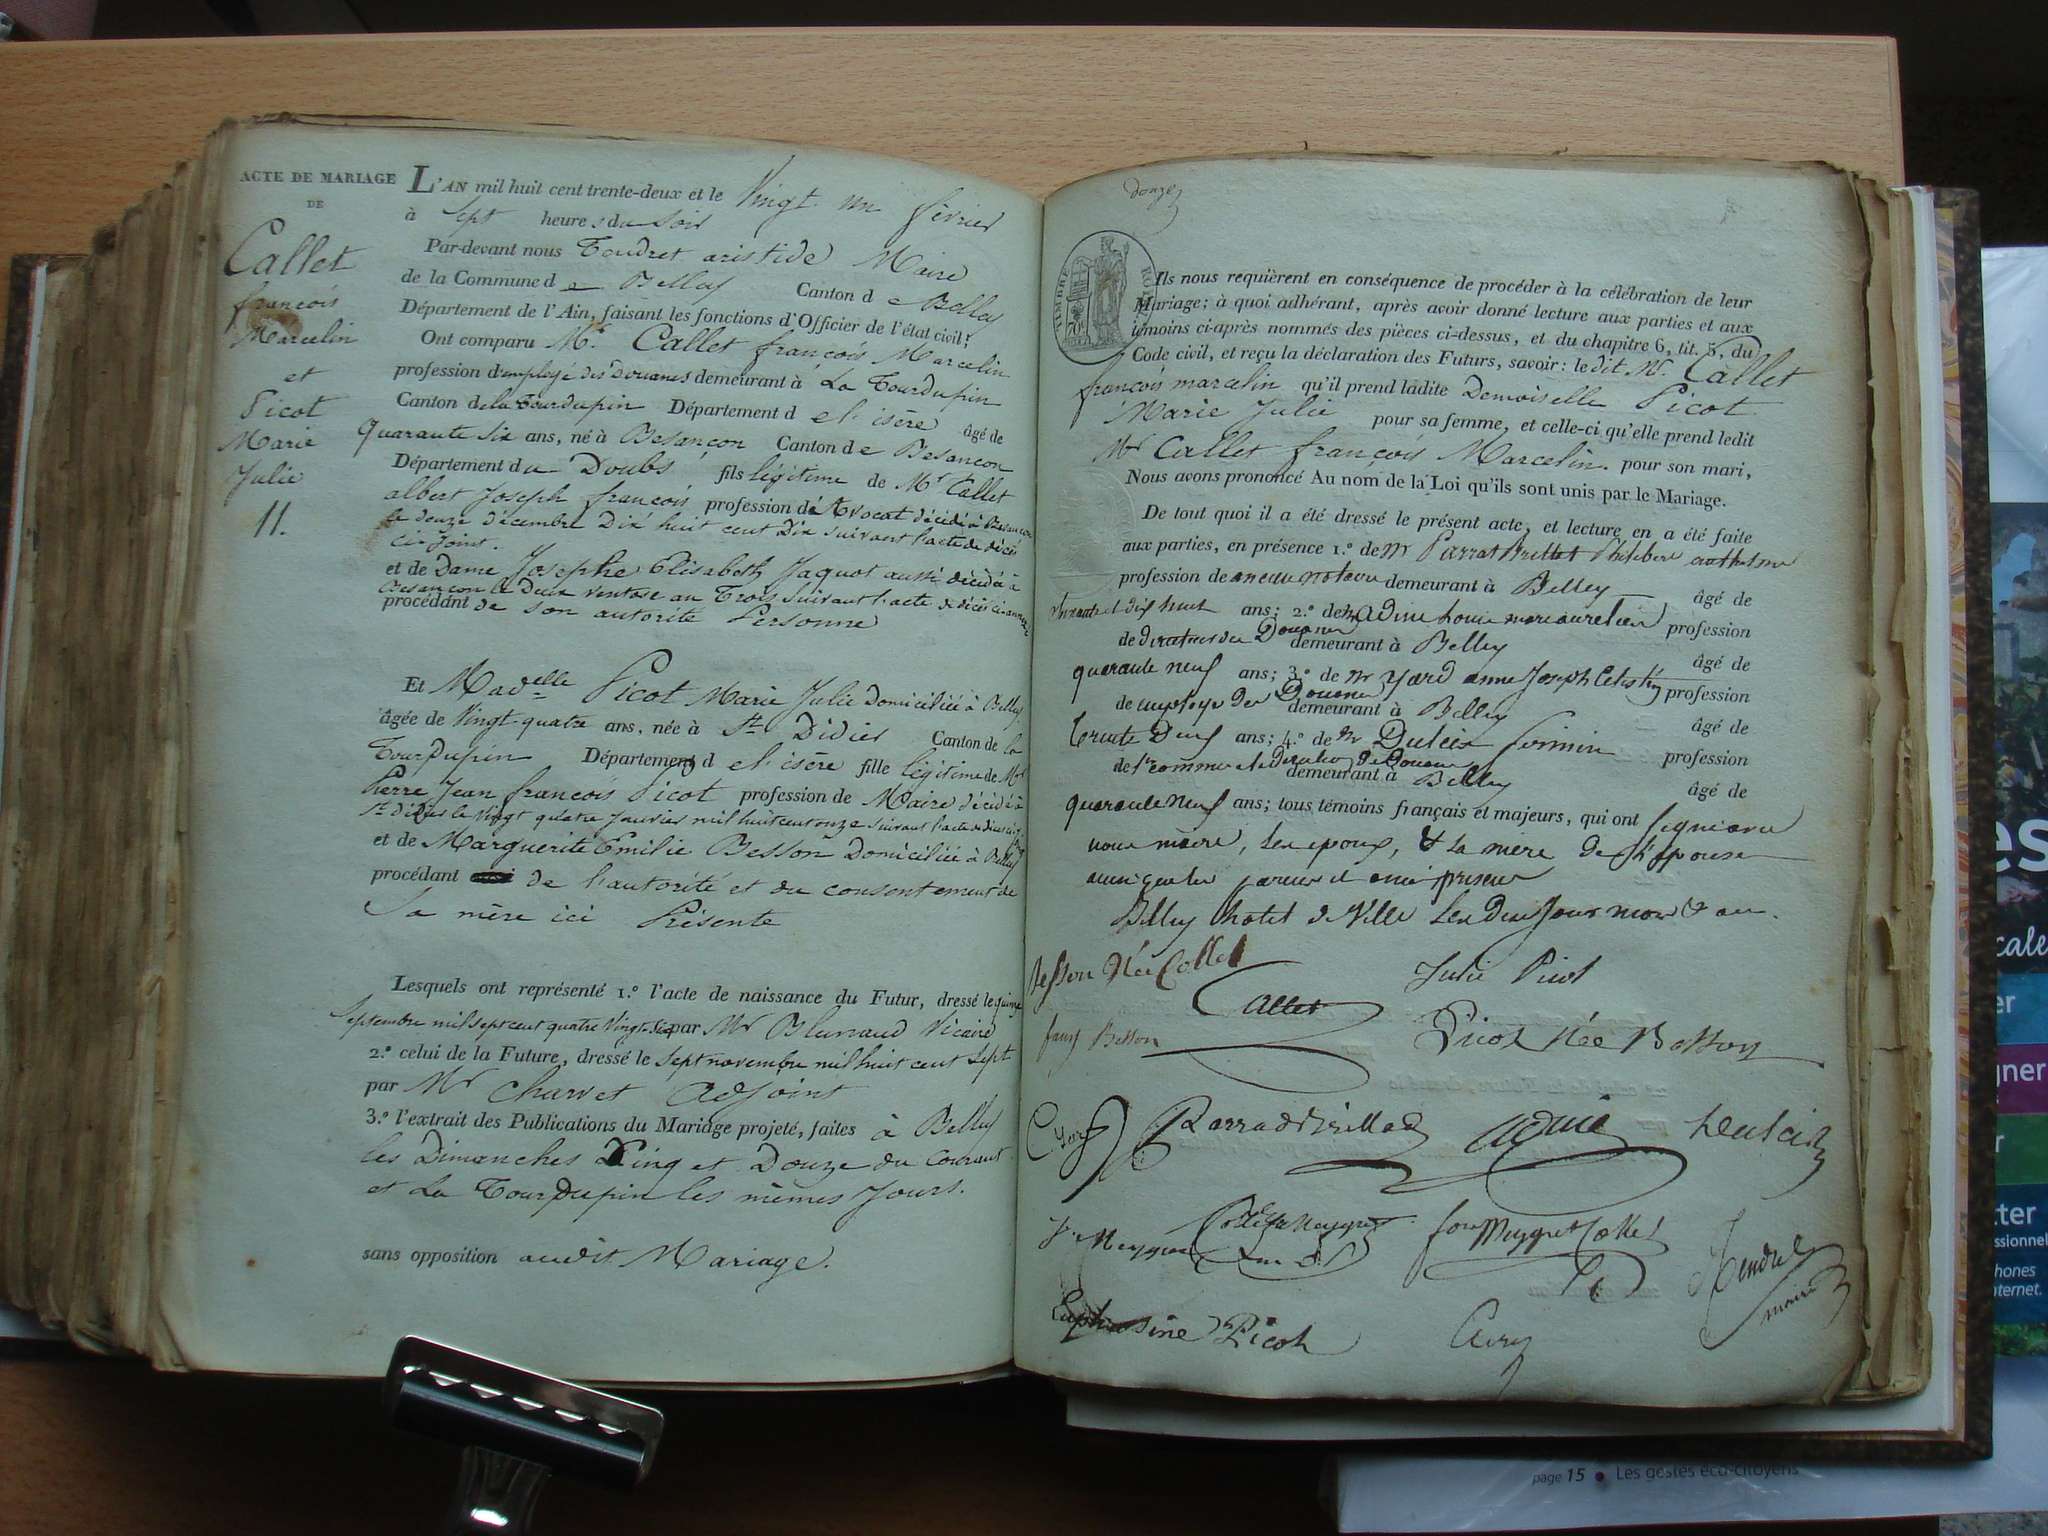 ACTE DE MARIAGE
DE
Callet
françois
Marcelin
et
Picot
Marie
Julie
11.
L'AN mil huit cent trente-deux et le Vingt un février
à Sept heures du Soir
Par-devant nous aristide Maire
de la Commune de Belley Canton de Belley
Département de l'Ain, faisant les fonctions d'Officier de l'état civil;
Ont comparu Mr. Callet françois Marcelin
profession d'employé des Douanes demeurant à La Tourdupin
Canton de la Tourdupin Département de l'isère âgé de
Quarante six ans, né à Besançon Canton de Besançon
Département du Doubs fils légitime de Mr Callet
albert Joseph françois profession d'Avocat décédé à Besançon
le douze décembre Dix huit cent Dix suivant l'acte de décés
ci-Joint.
et de Dame Josephe Elisabeth Jaquot aussi décédée à
Besançon le Deux ventose an Trois suivant l'acte de décès ci annexé
procédant de son autorité Personne
Et Madelle Picot Marie Julie Domiciliée à Belley
âgée de Vingt-quatre ans, née à St. Didier Canton de la
Tourdupin Département de l'isère fille légitime de Mr
Pierre Jean françois Picot profession de Maire décédé à
St didier le Vingt quatre Janvier mil huit cent onze suivant l'acte
et de Marguerite Emilie Besson Domiciliée à Belley
procédant de l'autorité et du consentement de
Sa mère ici Présente
Lesquels ont représenté 1.º l'acte de naissance du Futur, dressé le quinze
Septembre mil sept cent quatre Vingt par Mr Vicaire
2.º celui de la Future, dressé le Sept novembre mil huit cent Sept
par Mr Charvet AdJoint
3.º l'extrait des Publications du Mariage projeté, faites à Belley
les Dimanches Cinq et Douze du Courant
et La Tourdupin les mêmes Jours.
sans opposition audit Mariage.
douze
TIMBRE ROYAL
70c
Ils nous requièrent en conséquence de procéder à la célébration de leur
Mariage; à quoi adhérant, après avoir donné lecture aux parties et aux
témoins ci-après nommés des pièces ci-dessus, et du chapitre 6, tit. 5, du
Code civil, et reçu la déclaration des Futurs, savoir: le dit Mr. Callet
françois marcelin qu'il prend ladite Demoiselle Picot
Marie Julie pour sa femme, et celle-ci qu'elle prend ledit
Mr Callet françois Marcelin. pour son mari,
Nous avons prononcé Au nom de la Loi qu'ils sont unis par le Mariage.
De tout quoi il a été dressé le présent acte, et lecture en a été faite
aux parties, en présence 1.º de Mr Parrat Brillat
profession de ancien notaire demeurant à Belley âgé de
ans; 2.º de Mr Adine Louis marc aurelien profession
de directeur des Douanes demeurant à Belley âgé de
quarante neuf ans; 3.º de Mr Yard anne Joseph Celestin profession
de employé des Douanes demeurant à Belley âgé de
Trente Deux ans; 4.º de Mr Dulcis firmin profession
de demeurant à Belley âgé de
quarante neuf ans; tous témoins français et majeurs, qui ont signé avec
nous maire, les epoux, & la mère de l'Epouse
ainsi que les parens et amis présens
Belley hotel de Ville les dits Jour mois & an.
Besson Née Callet
Julie Picot
Callet
fany Besson
Picot Née Besson
Yard
Parrat Brillat
Adine
Meygret Callet
maire
Euphrosine Picot
Avry
page 15 • Les gestes éco-citoyens